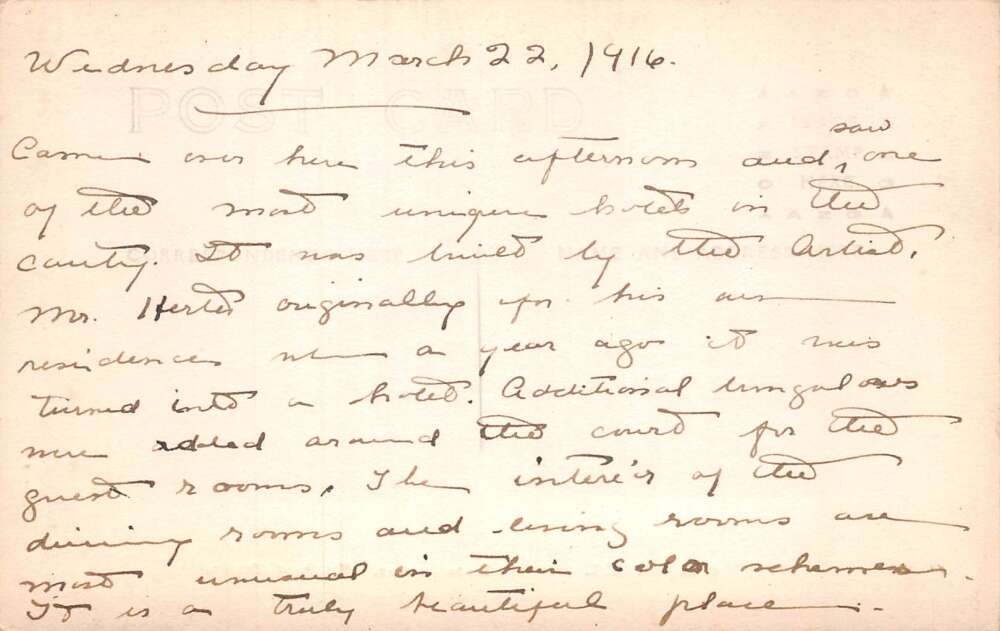 Wednesday March 22, 1916.
POST CARD
Came over here this afternoon and, saw one
of the most unique hotels in the
county. It was built by the Artist,
Mr. Herter originally for his own
residence when a year ago it was
turned into a hotel. Additional bungalows
were added around the court for the
guest rooms. The interi'r of the
dining rooms and living rooms are
most unusual in their color schemes.
It is a truly beautiful place.